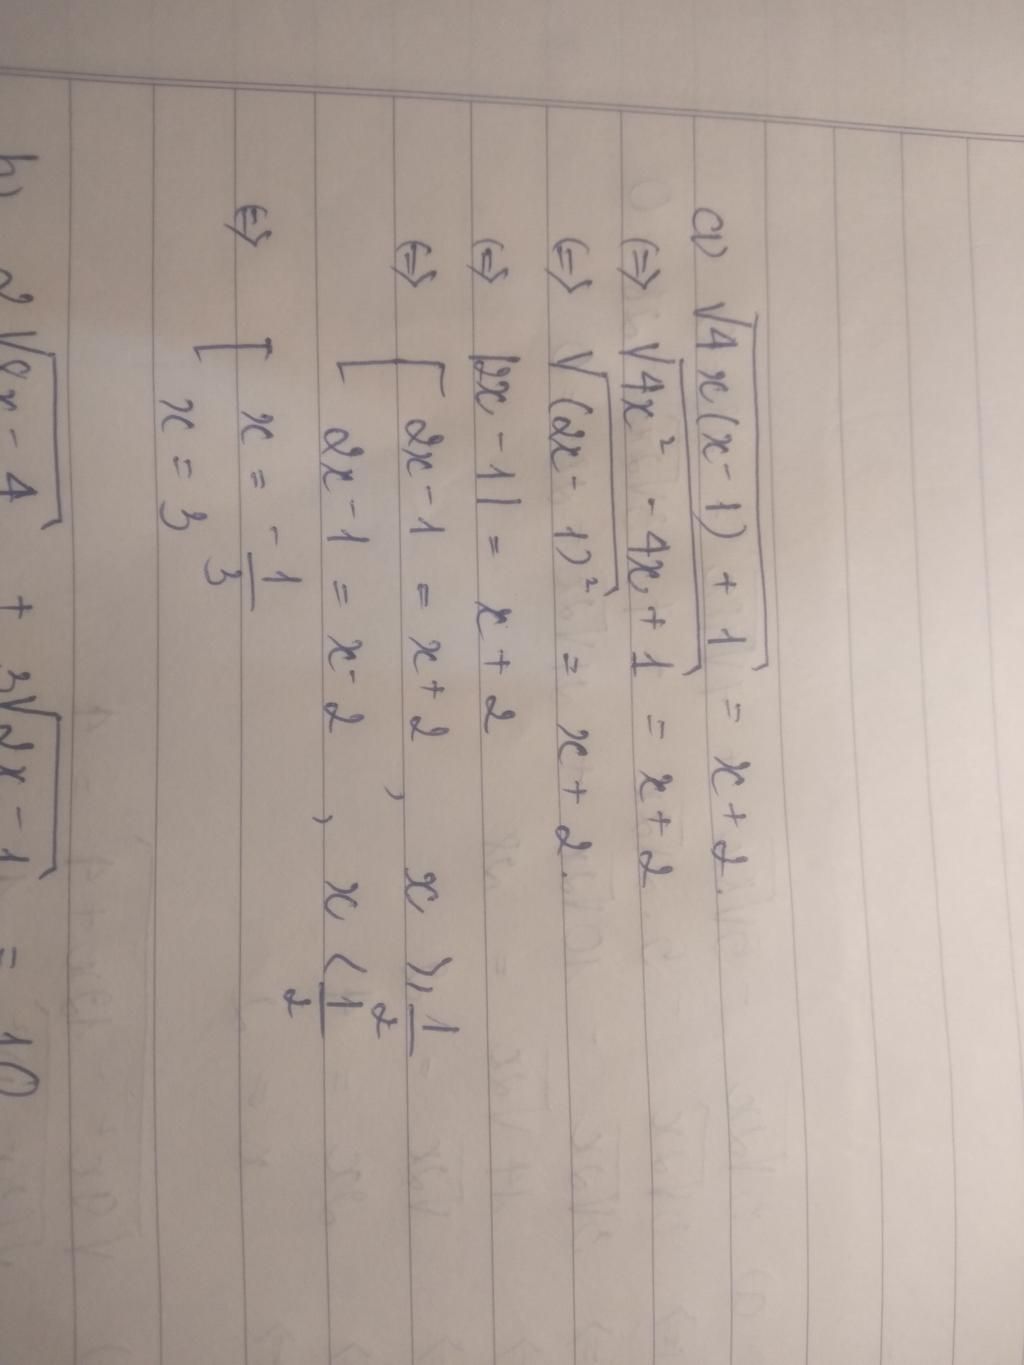 a) √4x(x-1) + 1 = x + 2
(=) √4x² - 4x + 1 = x + 2
(=) √(2x - 1)² = x + 2
(=) |2x - 1| = x + 2
(=) [ 2x - 1 = x + 2 , x ≥ 1/2
2x - 1 = x - 2 , x < 1/2
(=) [ x = -1/3
x = 3
b) 2√8x - 4 + 3√2x - 1 = 10